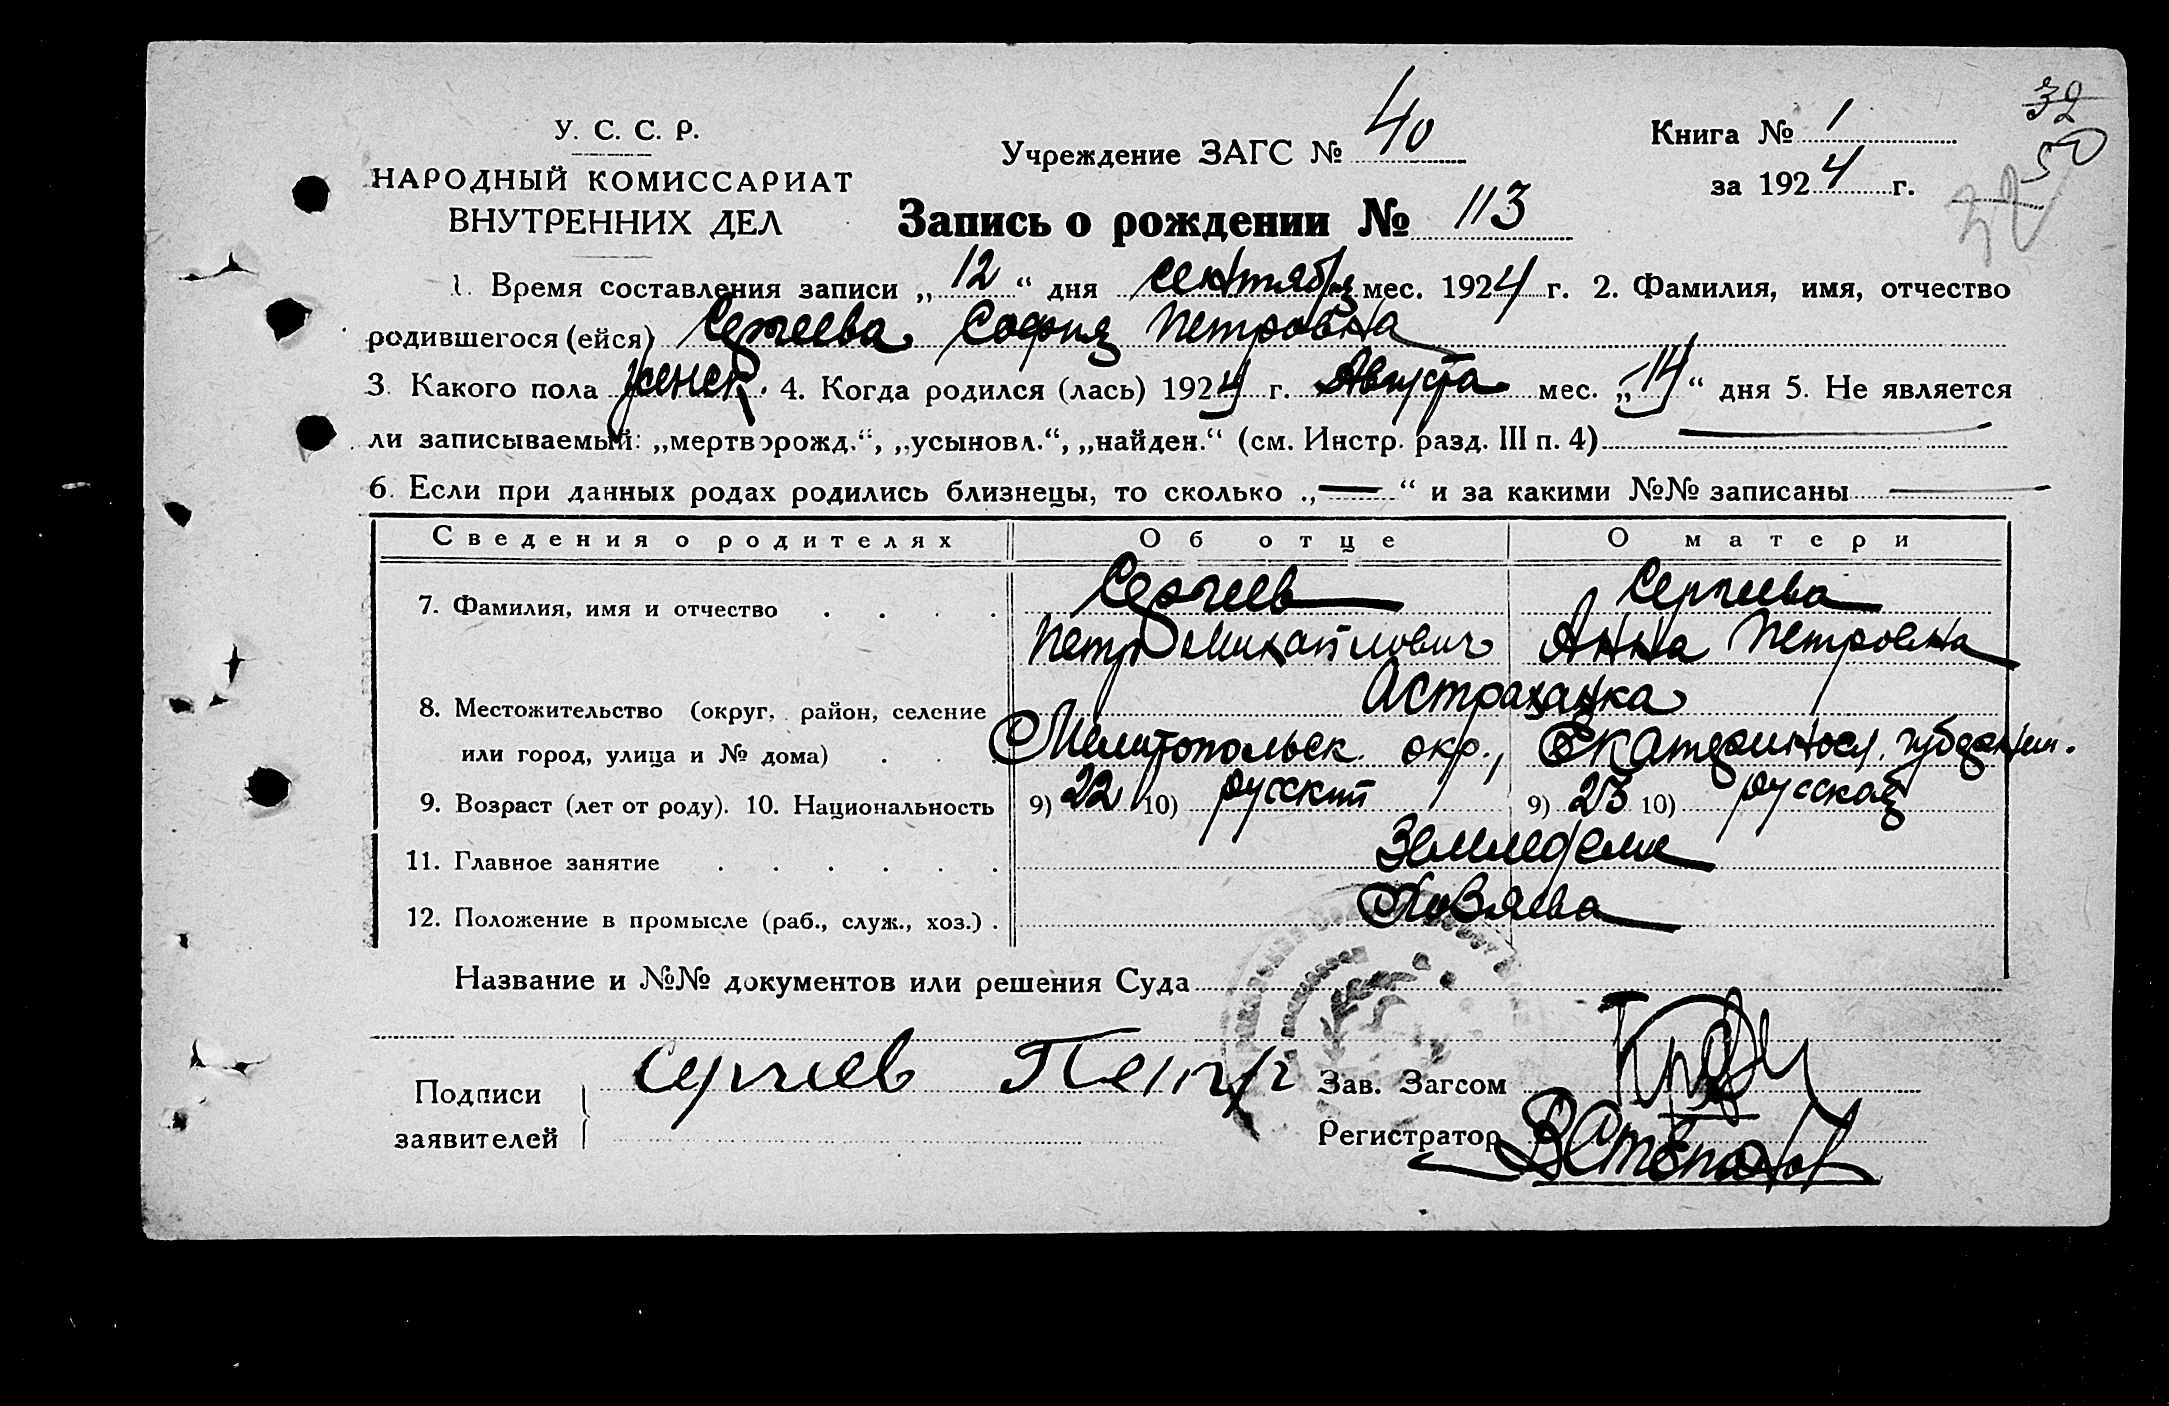 32
50
32
У. С. С. Р.
НАРОДНЫЙ КОМИССАРИАТ
ВНУТРЕННИХ ДЕЛ
Учреждение ЗАГС № 40
Книга № 1
за 1924 г.
Запись о рождении № 113
1. Время составления записи „12“ дня сентября мес. 1924 г. 2. Фамилия, имя, отчество
родившегося (ейся) Сергеева София Петровна
3. Какого пола женск. 4. Когда родился (лась) 1924 г. Августа мес. „14“ дня 5. Не является
ли записываемый: „мертворожд.“, „усыновл.“, „найден.“ (см. Инстр. разд. III п. 4) —
6. Если при данных родах родились близнецы, то сколько „—“ и за какими №№ записаны —
Сведения о родителях Об отце О матери
7. Фамилия, имя и отчество . . . . Сергеев Сергеева
Петр Михайлович Анна Петровна
8. Местожительство (округ, район, селение Астраханка
или город, улица и № дома) . . . Мелитопольск. окр., Екатериносл. губернии.
9. Возраст (лет от роду). 10. Национальность 9) 22 10) русский 9) 23 10) русская
11. Главное занятие . . . . . . Земледелие
12. Положение в промысле (раб., служ., хоз.) . Хозяева
Название и №№ документов или решения Суда
Подписи Сергеев Петр Зав. Загсом
заявителей Регистратор ВСтепанов